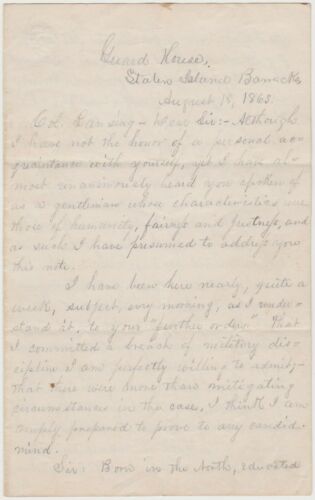 Guard House,
Staten Island Barracks,
August 15, 1863.
Col. Lansing – Dear Sir:- Although
I have not the honor of a personal ac-
quaintance with yourself, yet I have al-
most unanimously heard you spoken of
as a gentleman whose characteristics are
those of humanity, fairness and justness, and
as such I have presumed to address you
this note.
I have been here nearly, quite a
week, subject, every morning, as I under-
stand it, to your "further orders." That
I committed a breach of military dis-
cipline I am perfectly willing to admit;-
that there were more than mitigating
circumstances in the case, I think I am
amply prepared to prove to any candid
mind.
Sir: Born in the North, educated